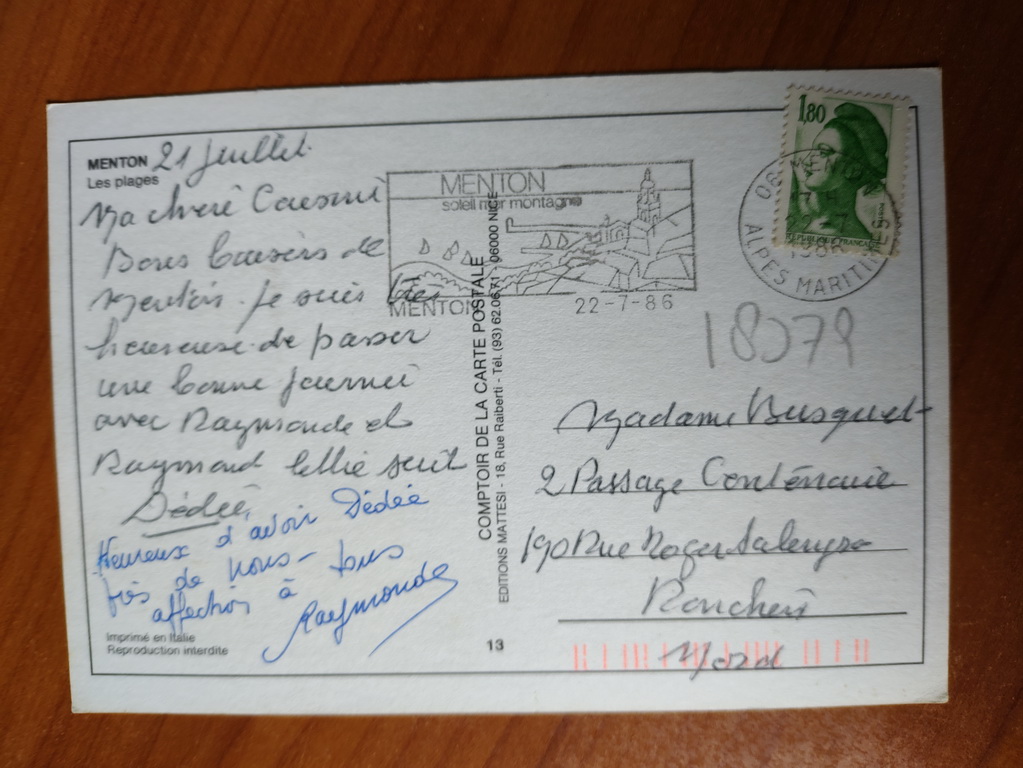 MENTON
Les plages
21 Juillet.
Ma chere
Bons baisers de
Menton. Je suis tres
heureuse de passer
une bonne journeé
avec Raymonde et
Raymond
Dédée
Heureux d'avoir Dédée
près de nous - tous
affection à
Raymonde
Imprimé en Italie
Reproduction interdite
MENTON
soleil mer montagne
MENTON
22-7-86
COMPTOIR DE LA CARTE POSTALE
EDITIONS MATTESI - 18, Rue Raiberti - Tél. (93) 62.06.71 - 06000 NICE
13
1,80
MENTON
1986
ALPES MARITIMES
Madame Busquet
2 Passage Centenaire
190 Rue Roger Salengro
Ronchin
Nord